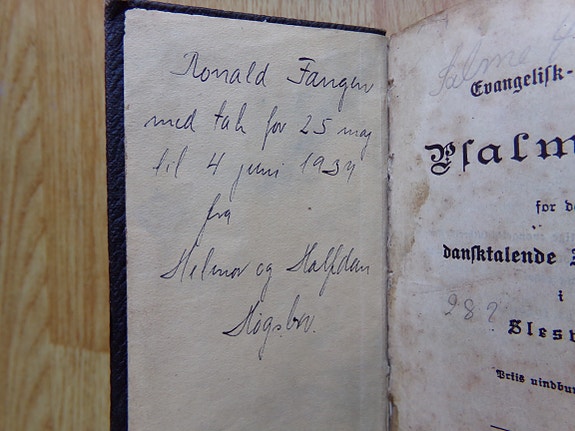 Ronald Fangen
med tak for 25 maj
til 4 juni 1934
fra
Helmor og Halfdan
Høgsbro.
Salme
Evangelisk-
Psalm
for d
dansktalende
i
282
Slesv
Prtis uindbun